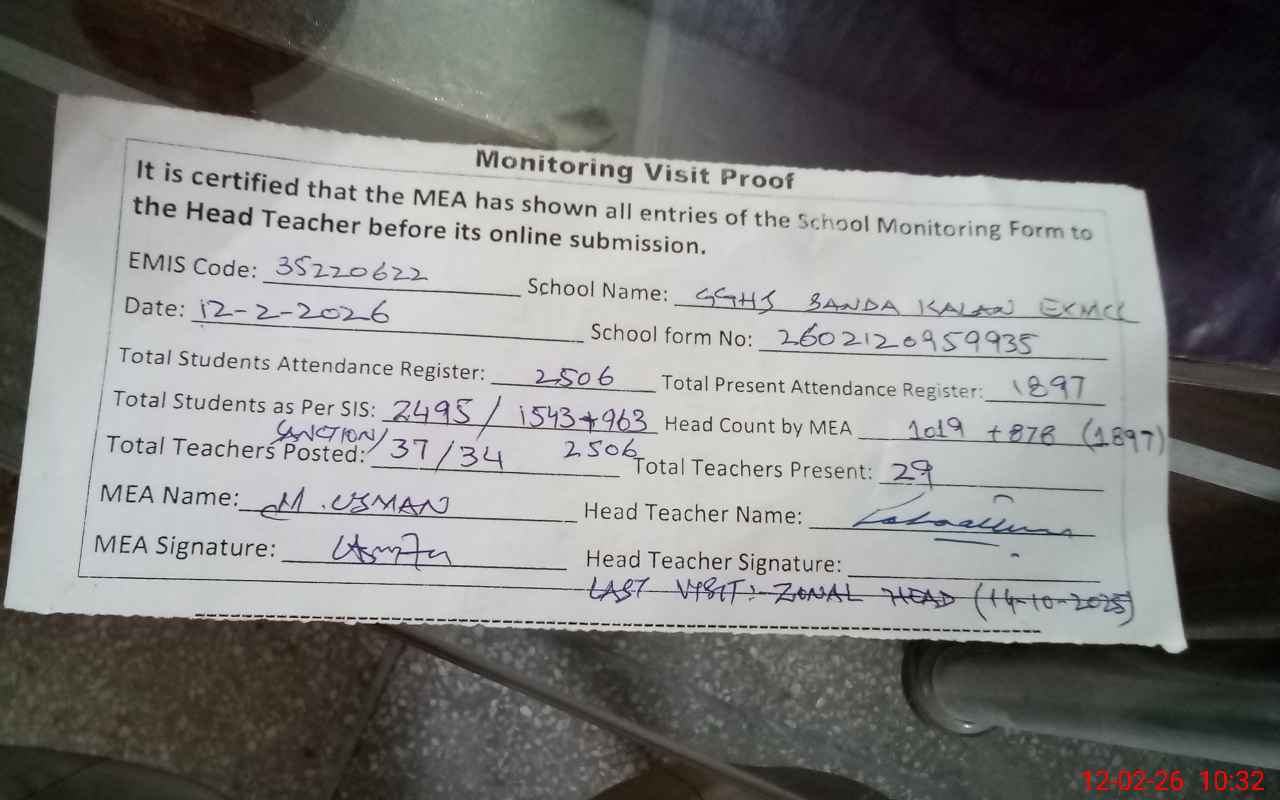 Monitoring Visit Proof
It is certified that the MEA has shown all entries of the School Monitoring Form to
the Head Teacher before its online submission.
EMIS Code: 35220622 School Name: GGHS BANDA KALAN EXMCL
Date: 12-2-2026 School form No: 2602120959935
Total Students Attendance Register: 2506 Total Present Attendance Register: 1897
Total Students as Per SIS: 2495 / 1543+963 Head Count by MEA 1019 + 878 (1897)
SANCTION/ 2506
Total Teachers Posted: 37/34 Total Teachers Present: 29
MEA Name: M. USMAN Head Teacher Name:
MEA Signature: Head Teacher Signature:
LAST VISIT:- ZONAL HEAD (14-10-2025)
12-02-26 10:32